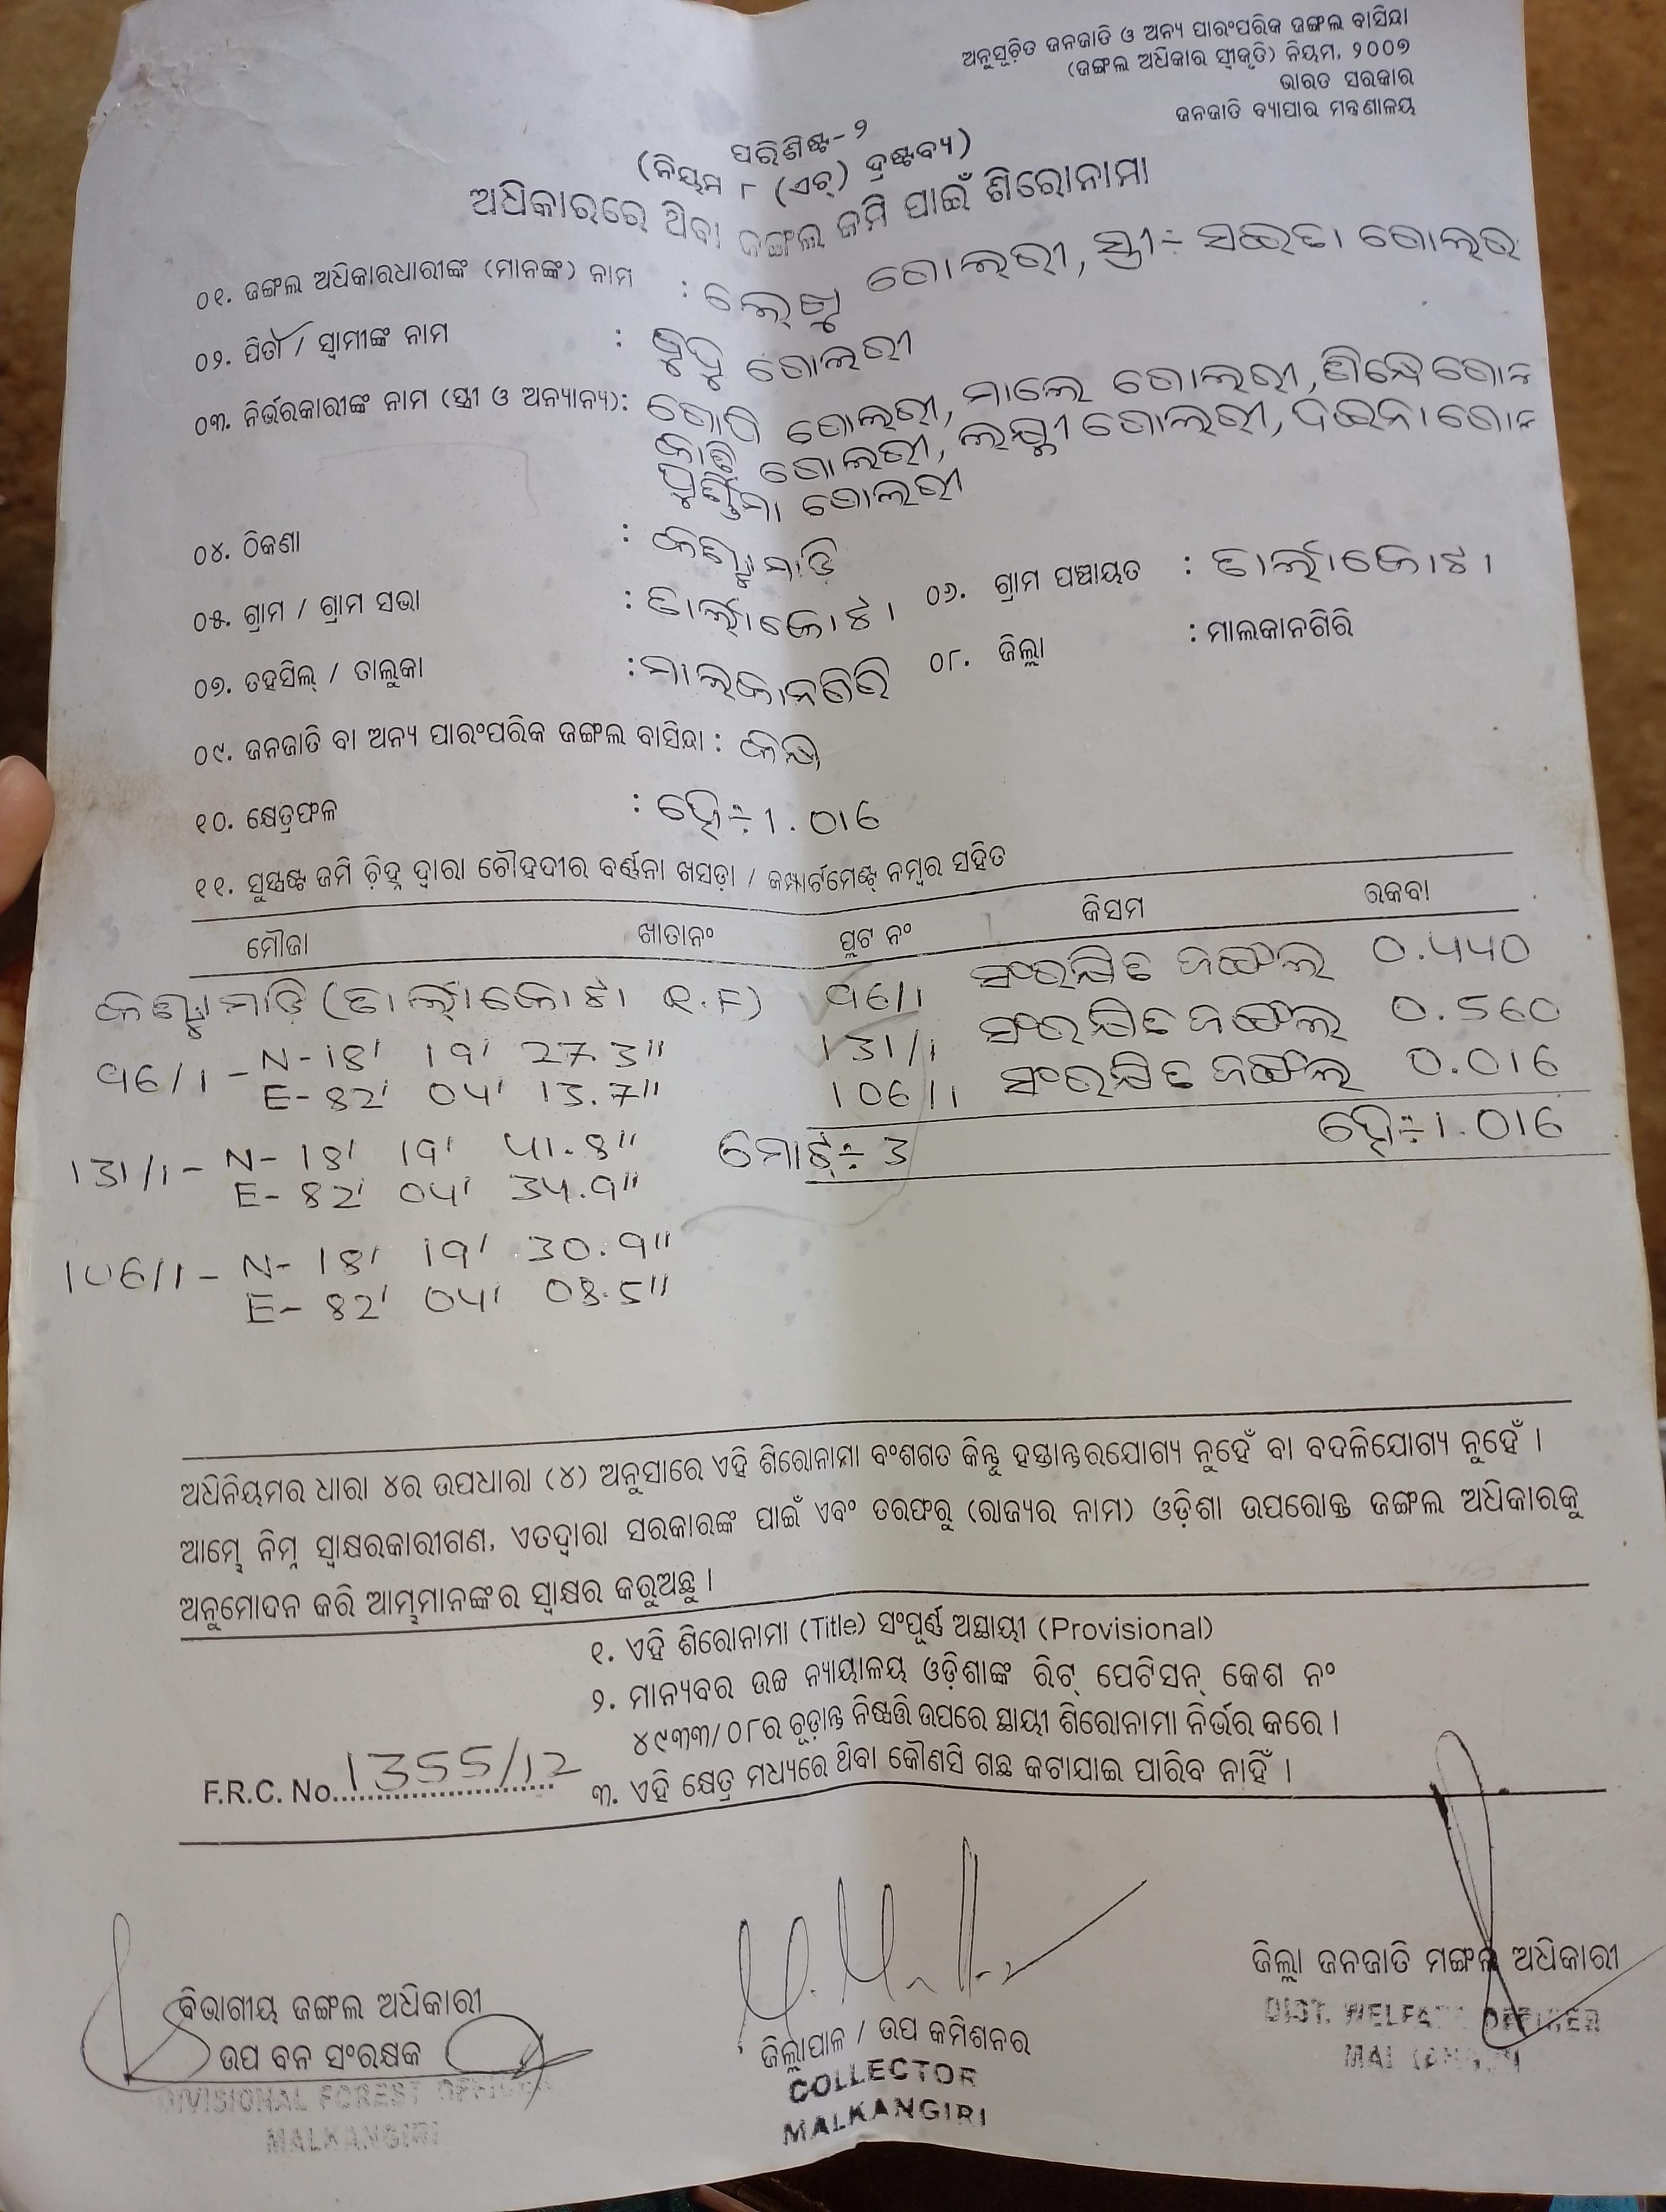 ଅନୁସୂଚିତ ଜନଜାତି ଓ ଅନ୍ୟ ପାରଂପରିକ ଜଙ୍ଗଲ ବାସିନ୍ଦା
(ଜଙ୍ଗଲ ଅଧିକାର ସ୍ୱୀକୃତି) ନିୟମ, ୨୦୦୭
ଭାରତ ସରକାର
ଜନଜାତି ବ୍ୟାପାର ମନ୍ତ୍ରଣାଳୟ
ପରିଶିଷ୍ଟ-୨
(ନିୟମ ୮ (ଏଚ୍) ଦ୍ରଷ୍ଟବ୍ୟ)
ଅଧିକାରରେ ଥିବା ଜଙ୍ଗଲ ଜମି ପାଇଁ ଶିରୋନାମା
୦୧. ଜଙ୍ଗଲ ଅଧିକାରଧାରୀଙ୍କ (ମାନଙ୍କ) ନାମ : ଗୋଲରୀ, ସ୍ତ୍ରୀ÷ ଗୋଲର
୦୨. ପିତା / ସ୍ୱାମୀଙ୍କ ନାମ : ବୁଦୁ ଗୋଲରୀ
୦୩. ନିର୍ଭରକାରୀଙ୍କ ନାମ (ସ୍ତ୍ରୀ ଓ ଅନ୍ୟାନ୍ୟ): ଗୋପି ଗୋଲରୀ, ମାଲେ ଗୋଲରୀ,
ଗୋଲରୀ, ଲକ୍ଷ୍ମୀ ଗୋଲରୀ, ଦଇନା
ପୁର୍ଣ୍ଣିମା ଗୋଲରୀ
୦୪. ଠିକଣା :
୦୫. ଗ୍ରାମ / ଗ୍ରାମ ସଭା : ତାର୍ଲାକୋଟା ୦୬. ଗ୍ରାମ ପଞ୍ଚାୟତ : ତାର୍ଲାକୋଟା
୦୭. ତହସିଲ୍ / ତାଲୁକା : ମାଲକାନଗିରି ୦୮. ଜିଲ୍ଲା : ମାଲକାନଗିରି
୦୯. ଜନଜାତି ବା ଅନ୍ୟ ପାରଂପରିକ ଜଙ୍ଗଲ ବାସିନ୍ଦା : କନ୍ଧ
୧୦. କ୍ଷେତ୍ରଫଳ : ହେ÷1.016
୧୧. ସୁସ୍ପଷ୍ଟ ଜମି ଚିହ୍ନ ଦ୍ୱାରା ଚୌହଦୀର ବର୍ଣ୍ଣନା ଖସଡ଼ା / କମ୍ପାର୍ଟମେଣ୍ଟ୍ ନମ୍ବର ସହିତ
ମୌଜା ଖାତାନଂ ପ୍ଲଟ ନଂ କିସମ ରକବା
(ତାର୍ଲାକୋଟା R.F) 96/1 ସଂରକ୍ଷିତ ଜଙ୍ଗଲ 0.440
96/1 - N-18' 19' 27.3" 131/1 ସଂରକ୍ଷିତ ଜଙ୍ଗଲ 0.560
E- 82' 04' 13.7" 106/1 ସଂରକ୍ଷିତ ଜଙ୍ଗଲ 0.016
131/1 - N- 18' 19' 41.8" ମୋଟ୍÷ 3 ହେ÷1.016
E- 82' 04' 34.9"
106/1 - N- 18' 19' 30.9"
E- 82' 04' 08.5"
ଅଧିନିୟମର ଧାରା ୪ର ଉପଧାରା (୪) ଅନୁସାରେ ଏହି ଶିରୋନାମା ବଂଶଗତ କିନ୍ତୁ ହସ୍ତାନ୍ତରଯୋଗ୍ୟ ନୁହେଁ ବା ବଦଳିଯୋଗ୍ୟ ନୁହେଁ ।
ଆମ୍ଭେ ନିମ୍ନ ସ୍ୱାକ୍ଷରକାରୀଗଣ, ଏତଦ୍ୱାରା ସରକାରଙ୍କ ପାଇଁ ଏବଂ ତରଫରୁ (ରାଜ୍ୟର ନାମ) ଓଡ଼ିଶା ଉପରୋକ୍ତ ଜଙ୍ଗଲ ଅଧିକାରକୁ
ଅନୁମୋଦନ କରି ଆମ୍ଭମାନଙ୍କର ସ୍ୱାକ୍ଷର କରୁଅଛୁ ।
୧. ଏହି ଶିରୋନାମା (Title) ସଂପୂର୍ଣ୍ଣ ଅସ୍ଥାୟୀ (Provisional)
୨. ମାନ୍ୟବର ଉଚ୍ଚ ନ୍ୟାୟାଳୟ ଓଡ଼ିଶାଙ୍କ ରିଟ୍ ପେଟିସନ୍ କେଶ ନଂ
୪୯୩୩/୦୮ର ଚୂଡ଼ାନ୍ତ ନିଷ୍ପତ୍ତି ଉପରେ ସ୍ଥାୟୀ ଶିରୋନାମା ନିର୍ଭର କରେ ।
F.R.C. No. 1355/12 ୩. ଏହି କ୍ଷେତ୍ର ମଧ୍ୟରେ ଥିବା କୌଣସି ଗଛ କଟାଯାଇ ପାରିବ ନାହିଁ ।
ବିଭାଗୀୟ ଜଙ୍ଗଲ ଅଧିକାରୀ
ଉପ ବନ ସଂରକ୍ଷକ
DIVISIONAL FOREST OFFICER
MALKANGIRI
ଜିଲ୍ଲାପାଳ / ଉପ କମିଶନର
COLLECTOR
MALKANGIRI
ଜିଲ୍ଲା ଜନଜାତି ମଙ୍ଗଳ ଅଧିକାରୀ
DIST. WELFARE OFFICER
MALKANGIRI